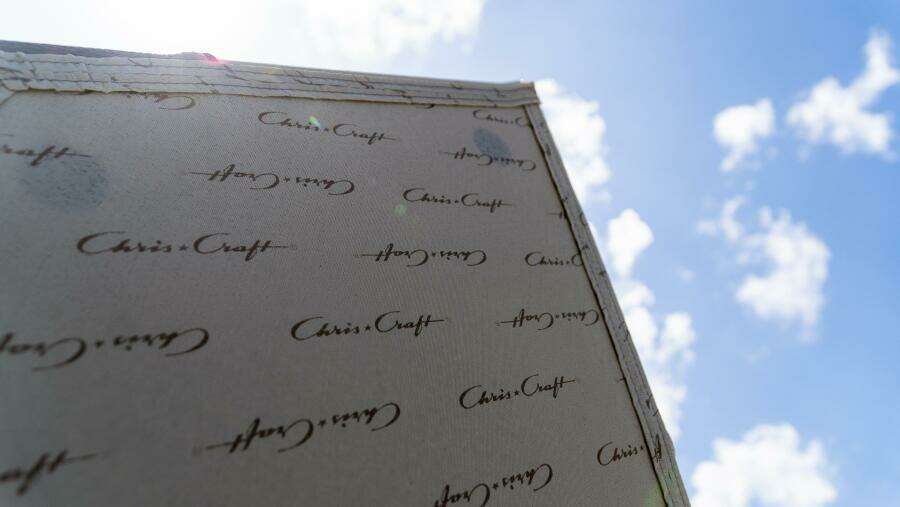 Chris★Craft
Chris
Craft
Chris★Craft
Chris★Craft
Chris★Craft
Chris★Craft
Chris★Craft
Chris★C
Chris★Craft
Chris★Craft
Chris★Craft
Chris★Craft
Chris★Craft
Chris★
Chris★Craft